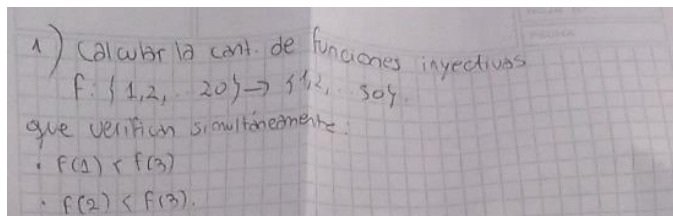 1) Calcular la cant. de funciones inyectivas
f: {1,2, .. 20} → {1,2, .. 50}.
que verifican simultáneamente:
• f(1) < f(3)
• f(2) < f(3).